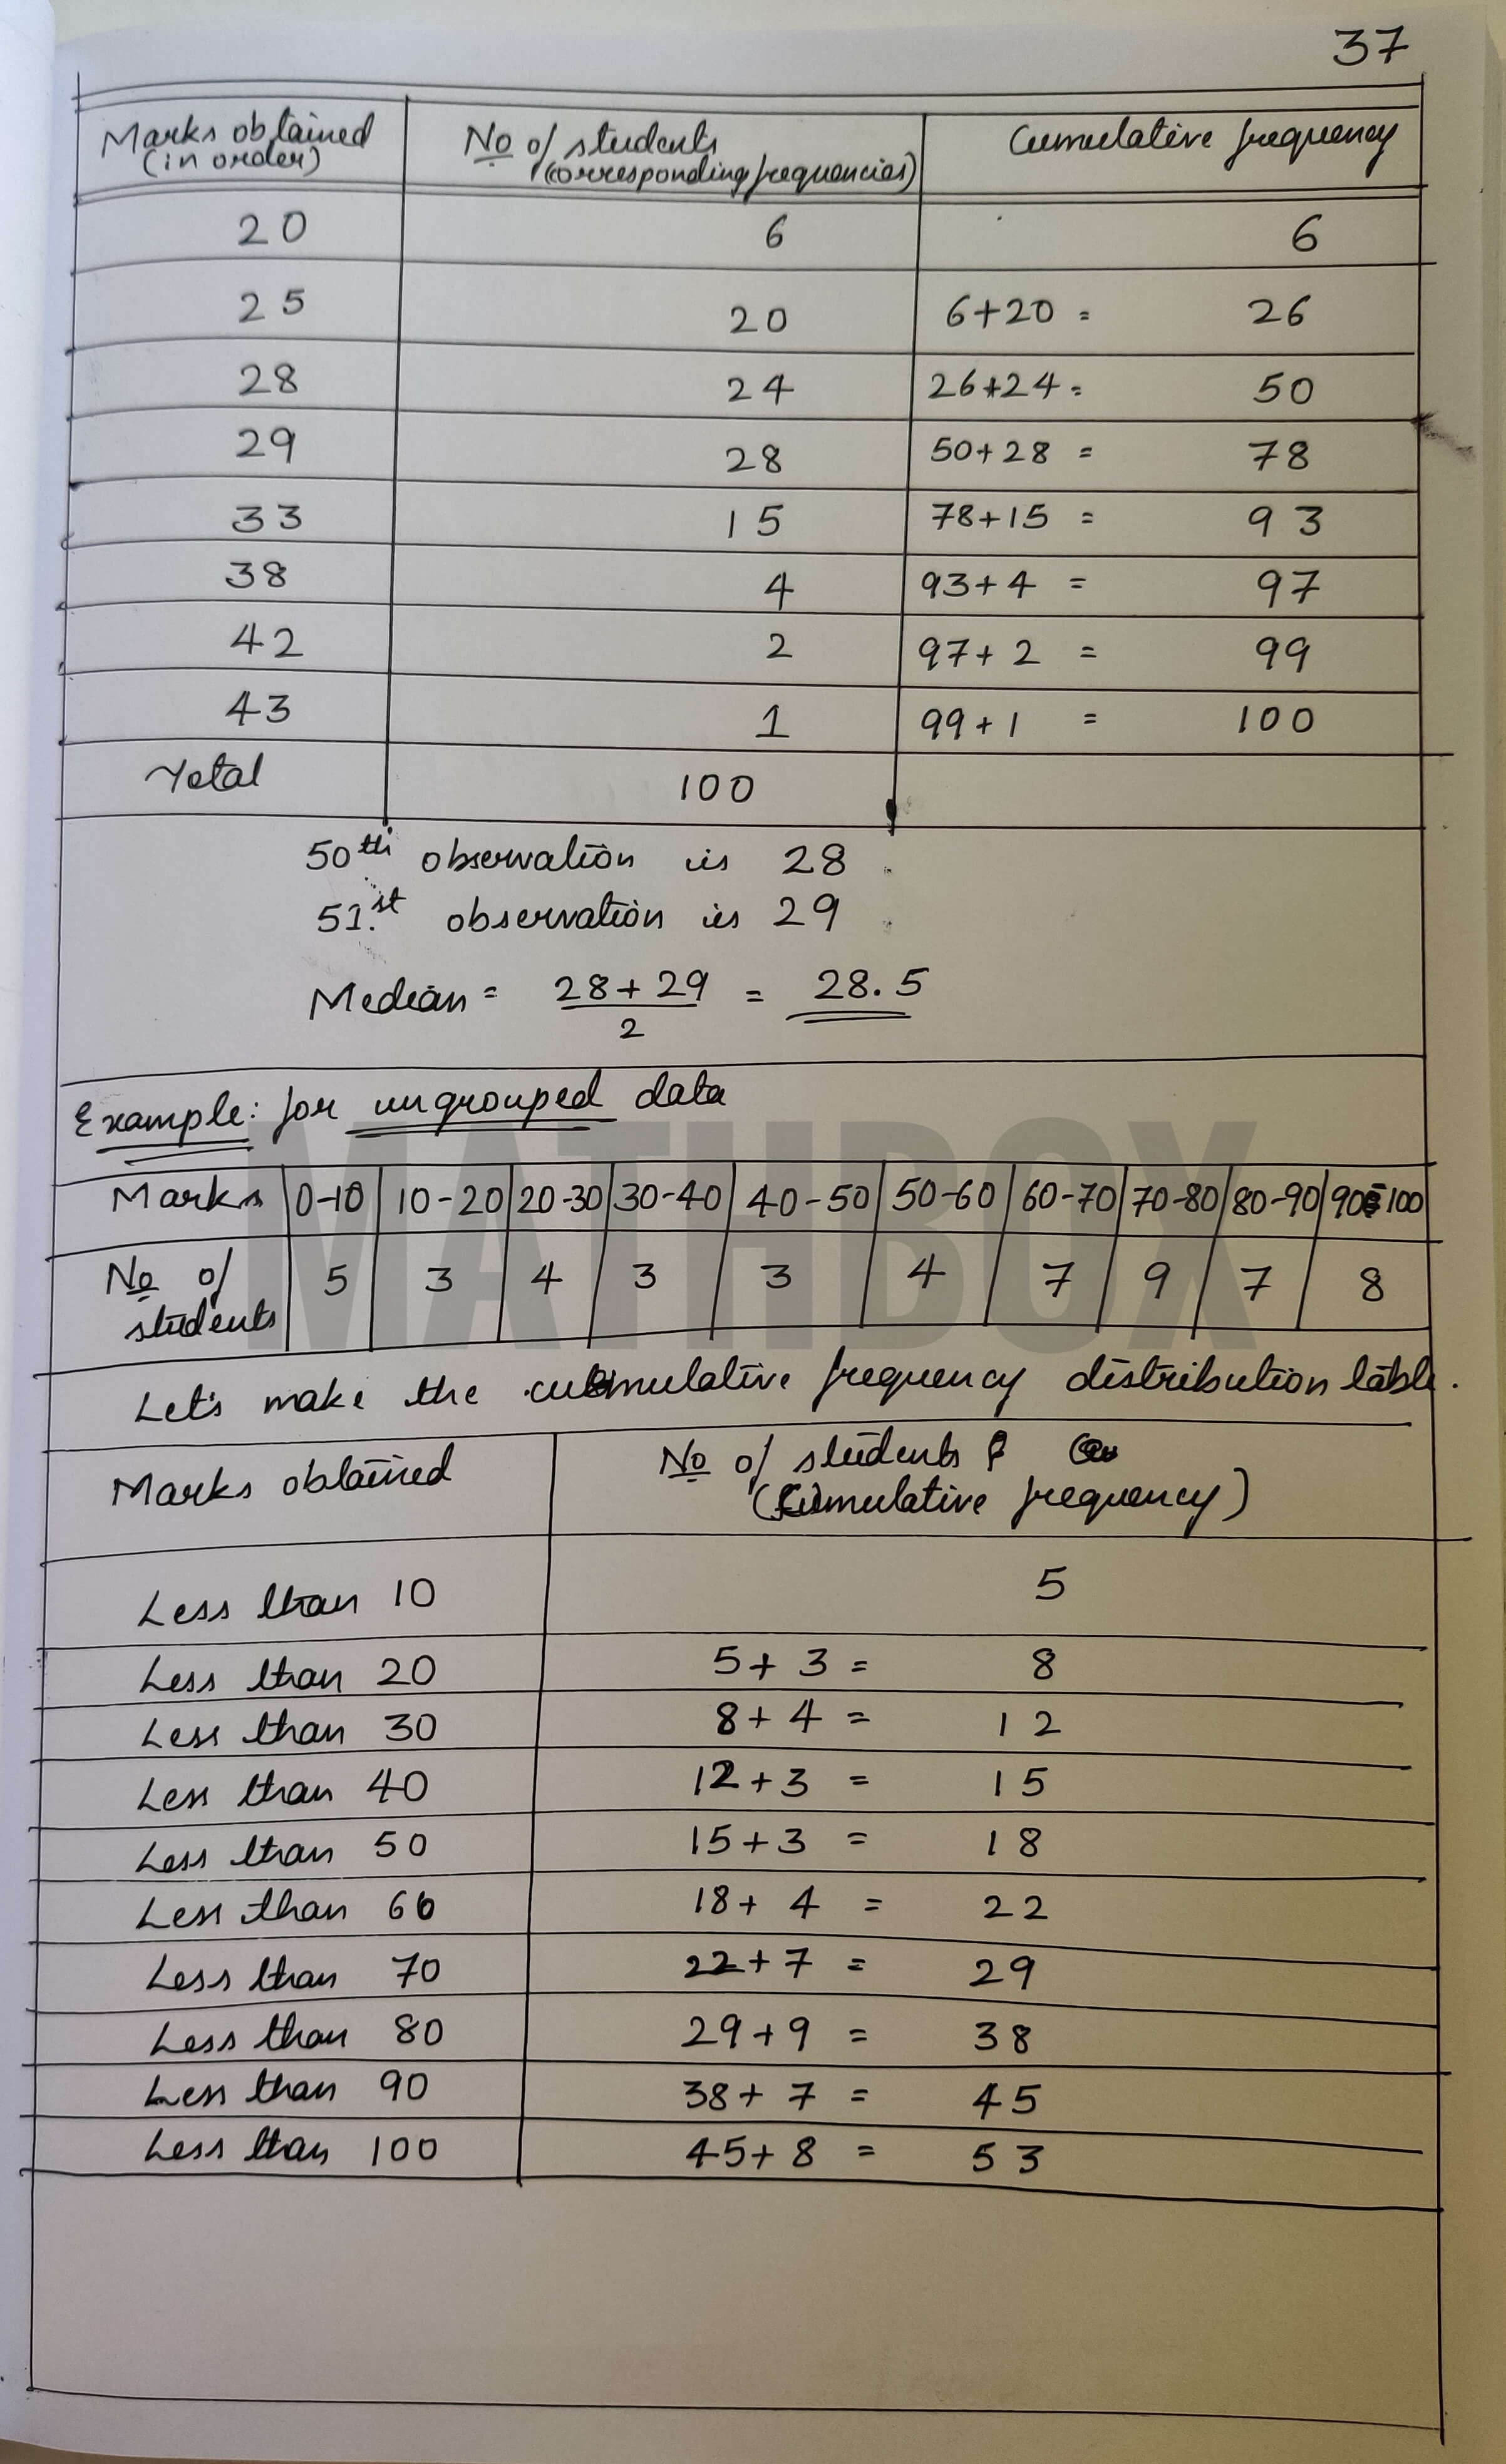 37
Marks obtained No of students Cumulative frequency
(in order) (corresponding frequencies)
20 6 6
25 20 6+20 = 26
28 24 26+24 = 50
29 28 50+28 = 78
33 15 78+15 = 93
38 4 93+4 = 97
42 2 97+2 = 99
43 1 99+1 = 100
Total 100
50th observation is 28
51st observation is 29
Median = 28+29 = 28.5
2
Example: for ungrouped data
MATHBOX
Marks 0-10 10-20 20-30 30-40 40-50 50-60 60-70 70-80 80-90 90-100
No of 5 3 4 3 3 4 7 9 7 8
students
Let's make the cumulative frequency distribution table.
Marks obtained No of students
(Cumulative frequency)
Less than 10 5
Less than 20 5+3 = 8
Less than 30 8+4 = 12
Less than 40 12+3 = 15
Less than 50 15+3 = 18
Less than 60 18+4 = 22
Less than 70 22+7 = 29
Less than 80 29+9 = 38
Less than 90 38+7 = 45
Less than 100 45+8 = 53